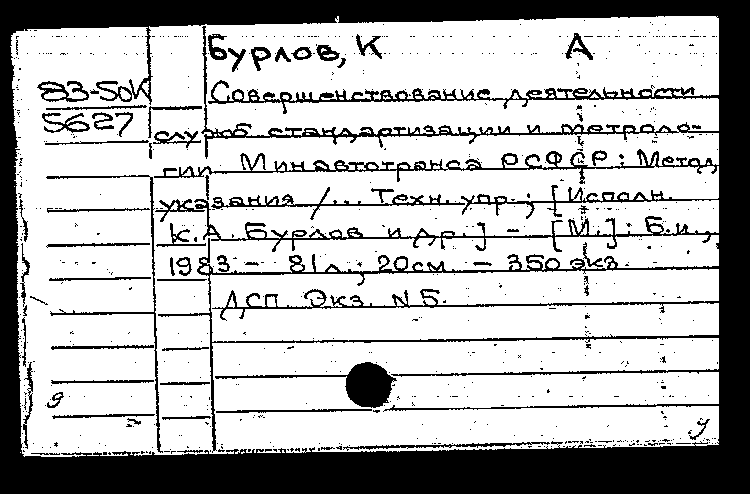 Бурлов, К А
83-5ОК Совершенствование деятельности
5627 служб стандартизации и метроло-
гии Минавтотранса РСФСР: Метод.
указания /... Техн. упр.; [Исполн.
К.А. Бурлов и др.] - [М.]: Б.и.,
1983. - 81л.; 20см. - 350 экз.
ДСП. Экз. N 5.
9
У